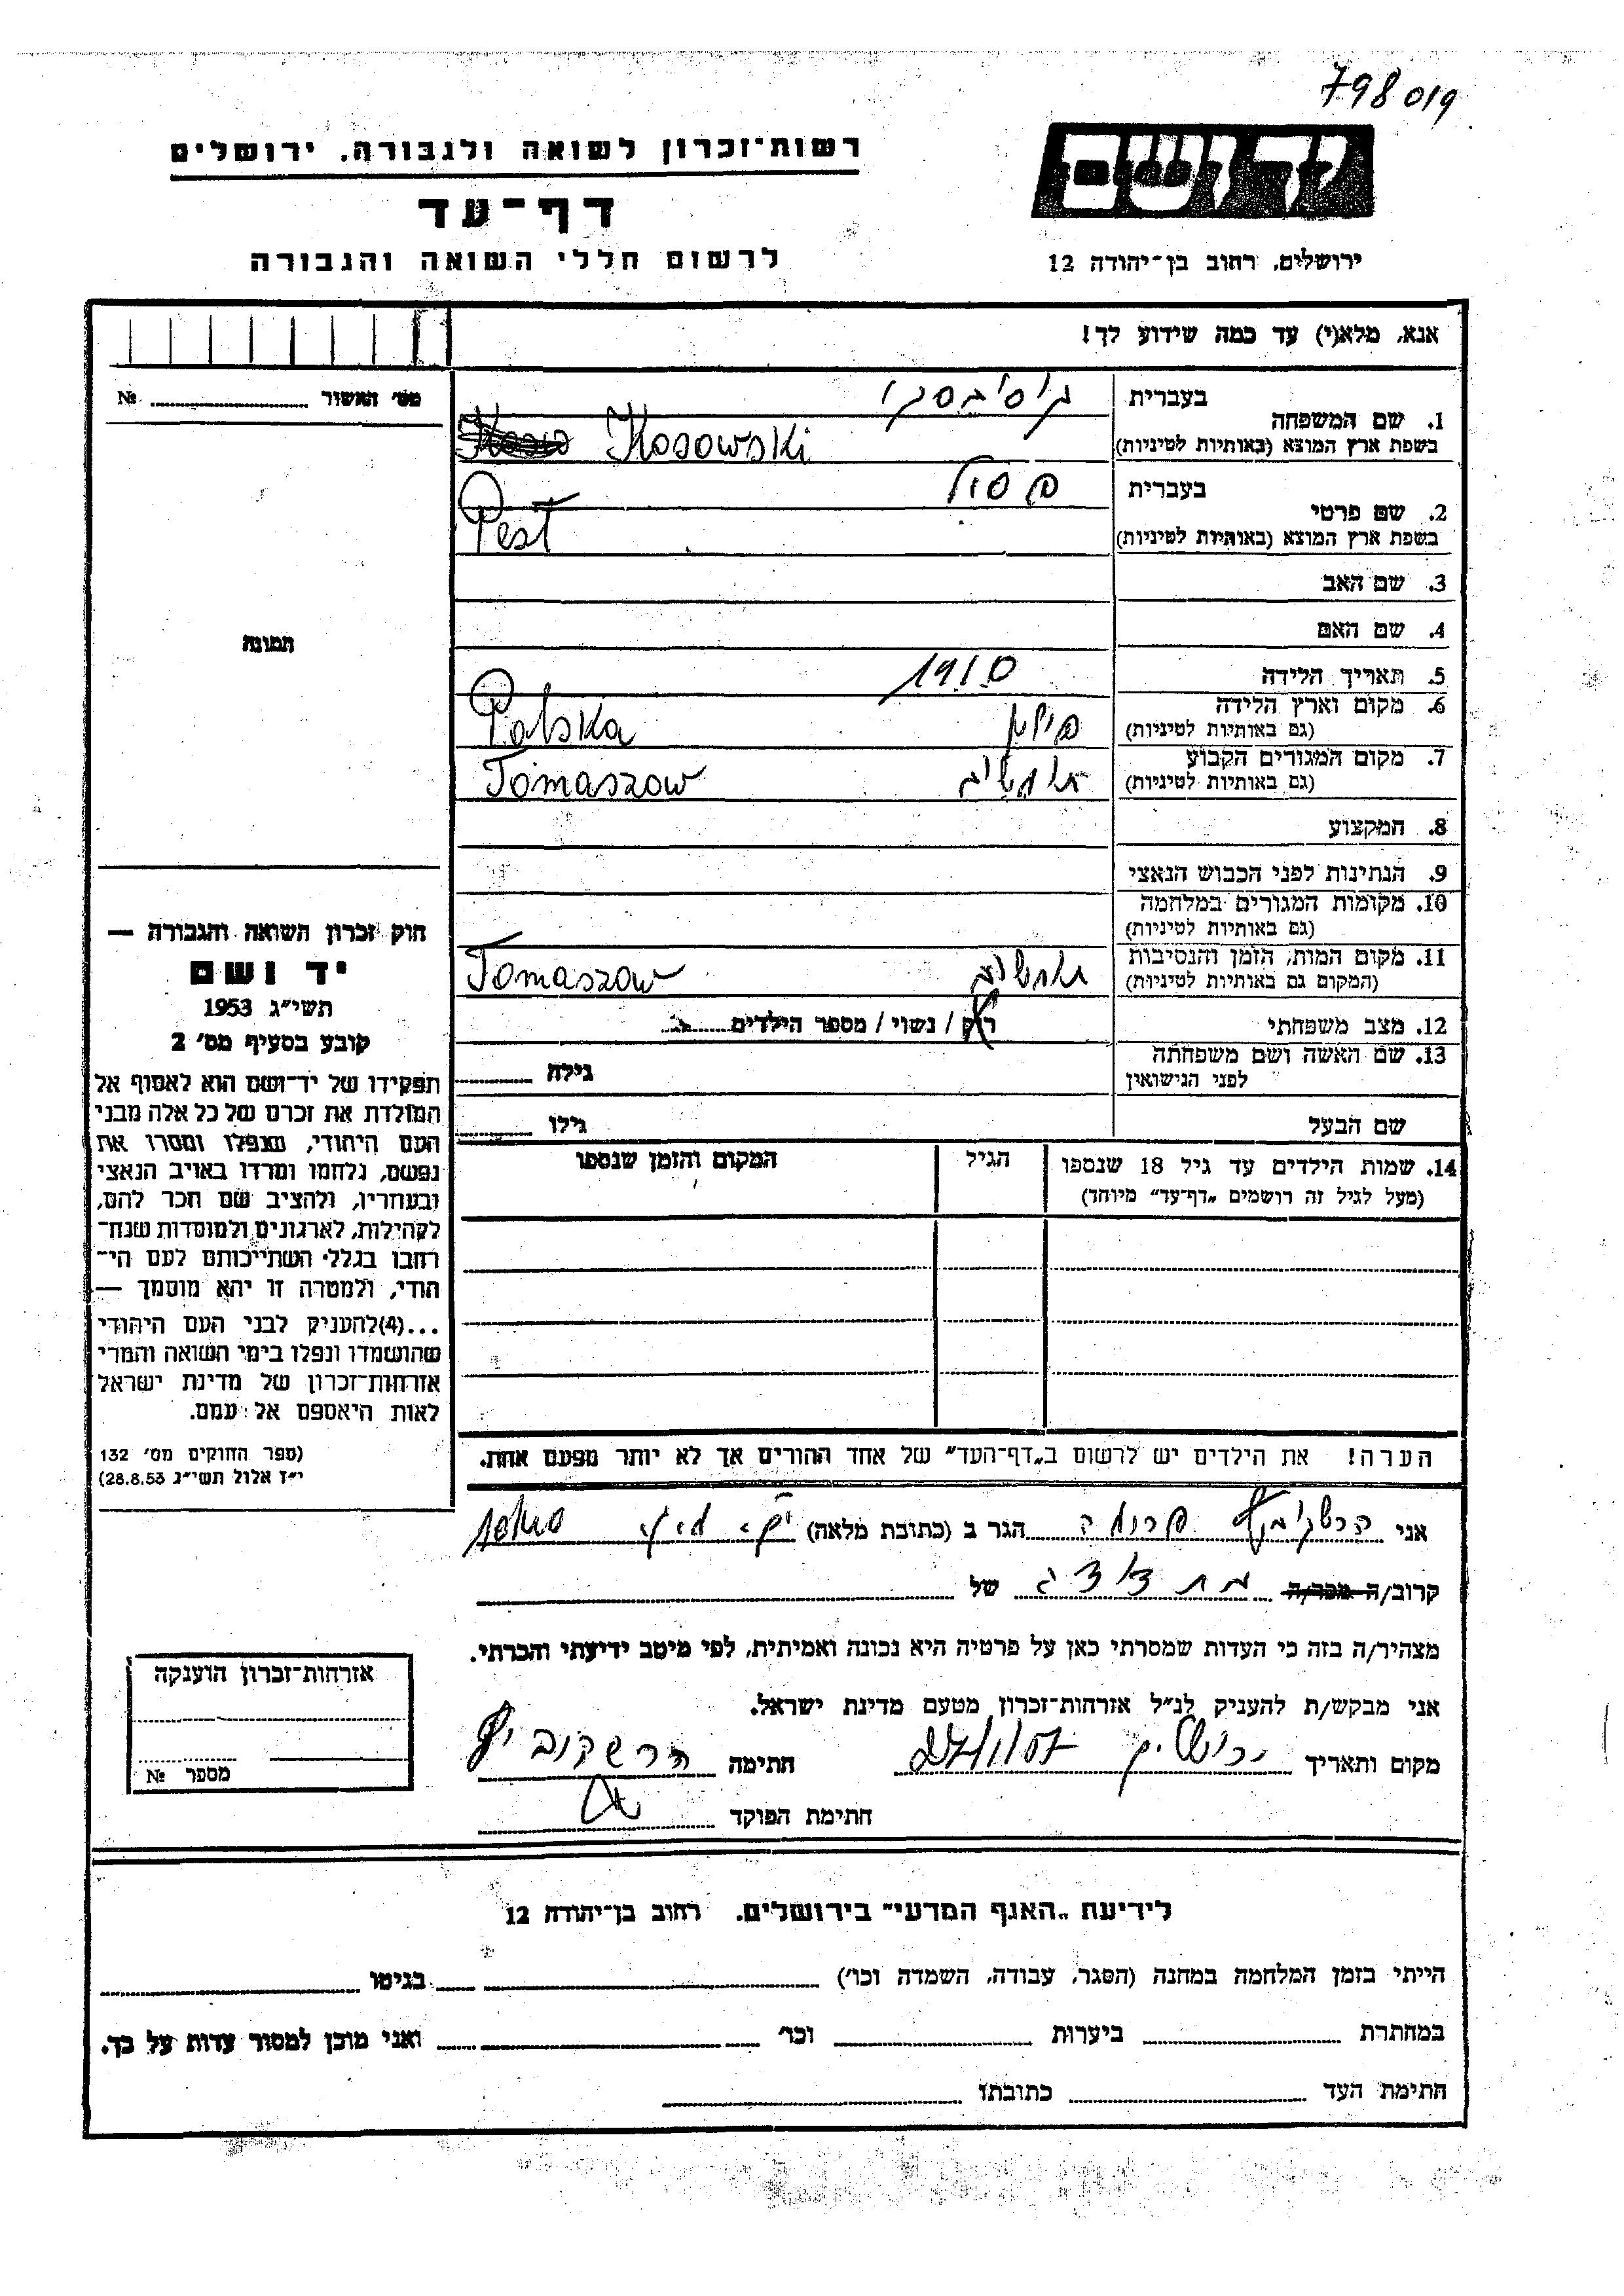 798019
יד ושם
רשות־זכרון לשואה ולגבורה, ירושלים
דף־עד
לרשום חללי השואה והגבורה
ירושלים, רחוב בן־יהודה 12
אנא, מלא(י) עד כמה שידוע לך!
מס׳ האשור № ........
1. שם המשפחה
בעברית
בשפת ארץ המוצא (באותיות לטיניות)
Kosowski
2. שם פרטי
בעברית
בשפת ארץ המוצא (באותיות לטיניות)
Pest
3. שם האב
4. שם האם
תמונה
5. תאריך הלידה 1910
6. מקום וארץ הלידה
(גם באותיות לטיניות)
פולין Polska
7. מקום המגורים הקבוע
(גם באותיות לטיניות)
Tomaszow
8. המקצוע
9. הנתינות לפני הכבוש הנאצי
10. מקומות המגורים במלחמה
(גם באותיות לטיניות)
11. מקום המות, הזמן והנסיבות
(המקום גם באותיות לטיניות)
Tomaszow
12. מצב משפחתי רוק / נשוי / מספר הילדים ........
13. שם האשה ושם משפחתה
לפני הנישואין
גילה ........
שם הבעל גילו ........
14. שמות הילדים עד גיל 18 שנספו
(מעל לגיל זה רושמים „דף־עד” מיוחד)
הגיל
המקום והזמן שנספו
חוק זכרון השואה והגבורה —
יד ושם
תשי״ג 1953
קובע בסעיף מס׳ 2
תפקידו של יד־ושם הוא לאסוף אל
המולדת את זכרם של כל אלה מבני
העם היהודי, שנפלו ומסרו את
נפשם, נלחמו ומרדו באויב הנאצי
ובעוזריו, ולהציב שם וזכר להם,
לקהילות, לארגונים ולמוסדות שנח־
רבו בגלל השתייכותם לעם הי־
הודי, ולמטרה זו יהא מוסמך —
...(4)להעניק לבני העם היהודי
שהושמדו ונפלו בימי השואה והמרי
אזרחות־זכרון של מדינת ישראל
לאות היאספם אל עמם.
(ספר החוקים מס׳ 132
י״ז אלול תשי״ג 28.8.53)
הערה! את הילדים יש לרשום ב„דף־העד” של אחד ההורים אך לא יותר מפעם אחת.
אני הרשקוביץ פרומה הגר ב (כתובת מלאה)
קרוב/ה מכר/ה של
מצהיר/ה בזה כי העדות שמסרתי כאן על פרטיה היא נכונה ואמיתית, לפי מיטב ידיעתי והכרתי.
אני מבקש/ת להעניק לנ״ל אזרחות־זכרון מטעם מדינת ישראל.
מקום ותאריך ירושלים 27/1/57 חתימה הרשקוביץ
חתימת הפוקד
אזרחות־זכרון הוענקה
מספר №
לידיעת „האגף המדעי” בירושלים, רחוב בן־יהודה 12
הייתי בזמן המלחמה במחנה (הסגר, עבודה, השמדה וכו׳) ........ בגיטו ........
במחתרת ........ ביערות ........ וכו׳ ........ ואני מוכן למסור עדות על כך.
חתימת העד ........ כתובתו ........